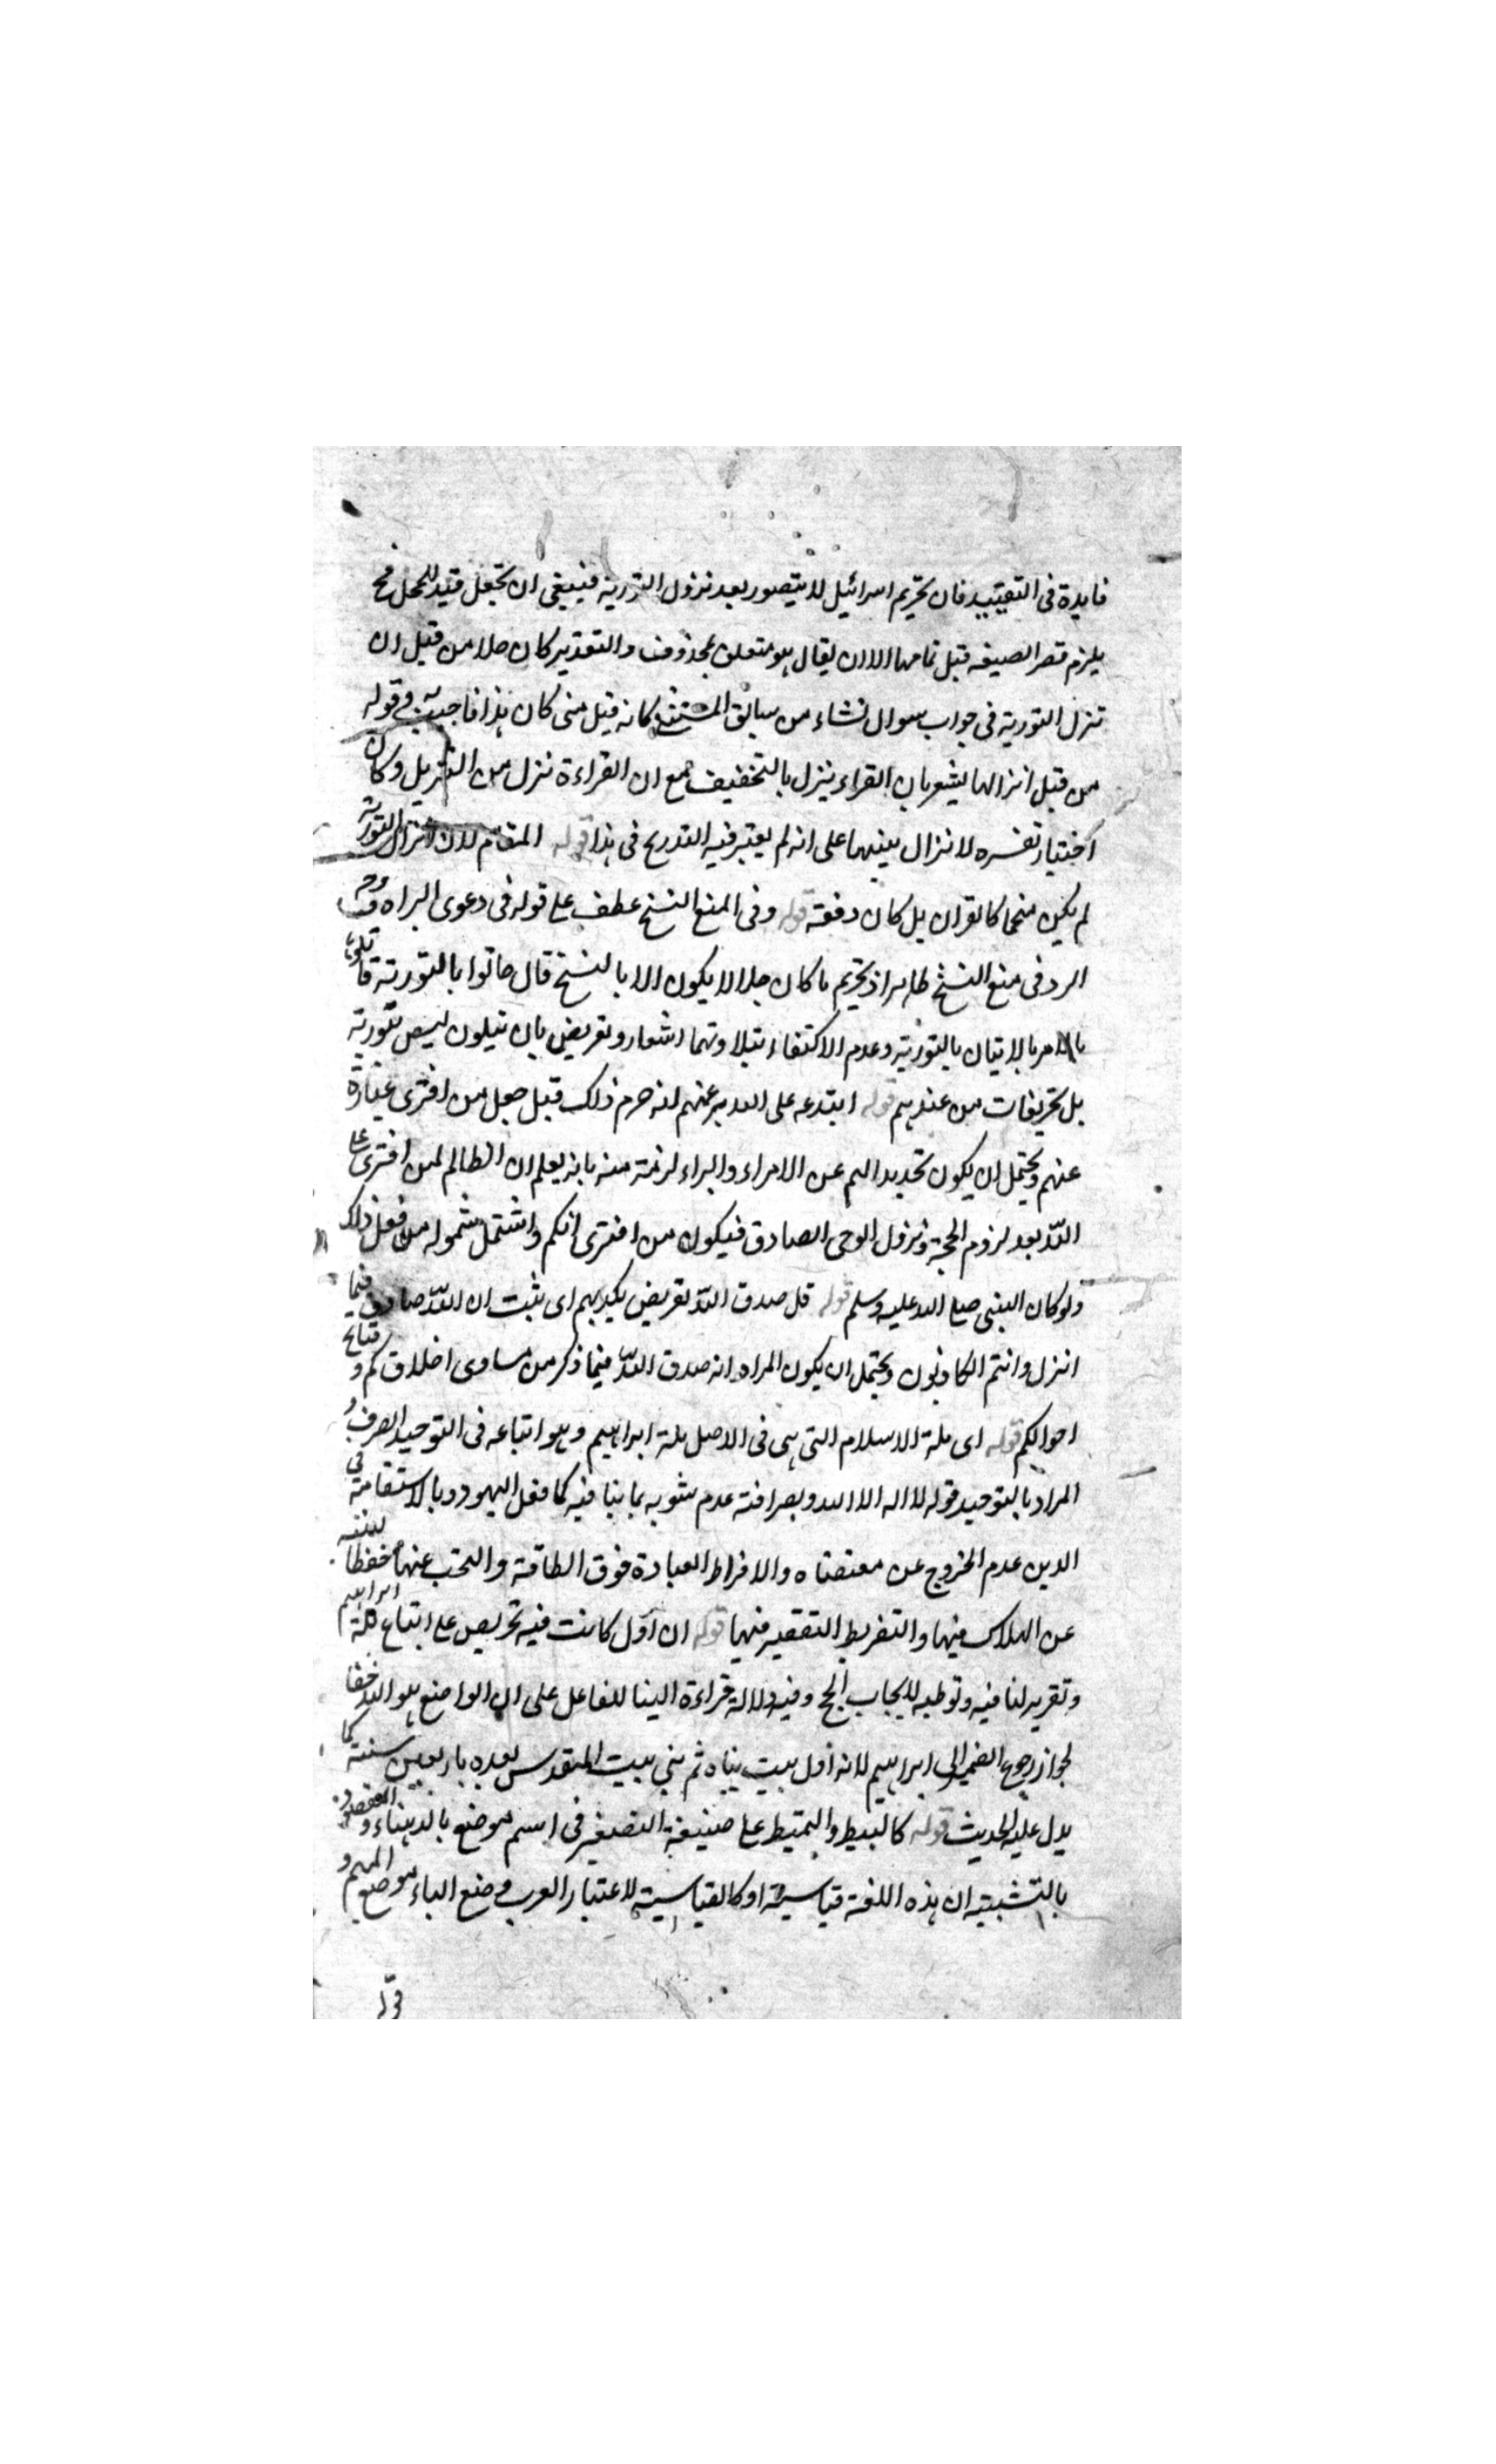 فايدة فى التقييد فان تحريم اسرائيل لا يتصور بعد نزول التورية فينبغى ان تجعل قيد للحمل فح
يلزم قصر الصيغه قبل تمامها الا ان يقال هو متعلق بمحذوف والتقدير كان حلا من قبل ان
تنزل التورية فى جواب سوال نشاء من سابق المستثنى كانه قيل متى كان هذا فاجيب وقوله
من قبل انزالها يشعر بان القراء ينزل بالتخفيف مع ان القراءة تنزل من التنزيل وكان
اختيار تفسره لانزال بينهما على انه لم يعتبر فيه التدريج فى هذا قوله المقام لان انزال التورية
لم يكن منجما كالقران بل كان دفعة قوله وفى المنع النسخ عطف على قوله فى دعوى البراه وجه
الرد فى منع النسخ ظاهر اذ تحريم ما كان حلالا يكون الا بالنسخ قال هاتوا بالتورية فاتلوها
بالامر بالاتيان بالتورية وعدم الاكتفاء بتلاوتها اشعار وتعريض بان يتلون ليس بتورية
بل تحريفات من عندهم قوله ابتدعه على الله بزعمهم انه حرم ذلك قبل جعل من افترى عبارة
عنهم ويحتمل ان يكون تحديدا لهم عن الامراء والبراء لزمة منه بانه يعلم ان الظالم لمن افترى على
الله بعد لزوم الحجة ونزول الوحى الصادق فيكون من افترى انكم واشتمل شموله من فعل ذلك
ولو كان النبى صلى الله عليه وسلم قوله قل صدق الله تعريض بكذبهم اى ثبت ان الله صادق فيما
انزل وانتم الكاذبون ويحتمل ان يكون المراد انه صدق الله فيما ذكر من مساوى اخلاقكم و قبائح
احوالكم قوله اى ملة الاسلام التى هى فى الاصل ملة ابراهيم وهو اتباعه فى التوحيد الصرف و
المراد بالتوحيد قوله لا اله الا الله وبصرافته عدم شوبه بما ينافيه كما فعل اليهود وبالاستقامة فى
الدين عدم الخروج عن مقتضاه والافراط العبادة فوق الطاقة والتجنب عنها حفظا لنفسه
عن الهلاك فيها والتفريط التقصير فيها قوله ان اول كانت فيه تحريص على اتباع ملة ابراهيم
وتقرير لنا فيه وتوطيه لايجاب الحج وفيه دلالة قراءة البنا للفاعل على ان الواضع هو الله خفا
لجواز رجوع الضمير الى ابراهيم لانه اول بيت بناه ثم بنى بيت المقدس بعده باربعين سنة كما
يدل عليه الحديث قوله كالنبيط والنميط على صنيغة التصغير فى اسم موضع بالدهناء و المقصود
بالتشبيه ان هذه اللغة قياسية او كالقياسية لاعتبار العرب وضع الباء موضع الميم و
قوله